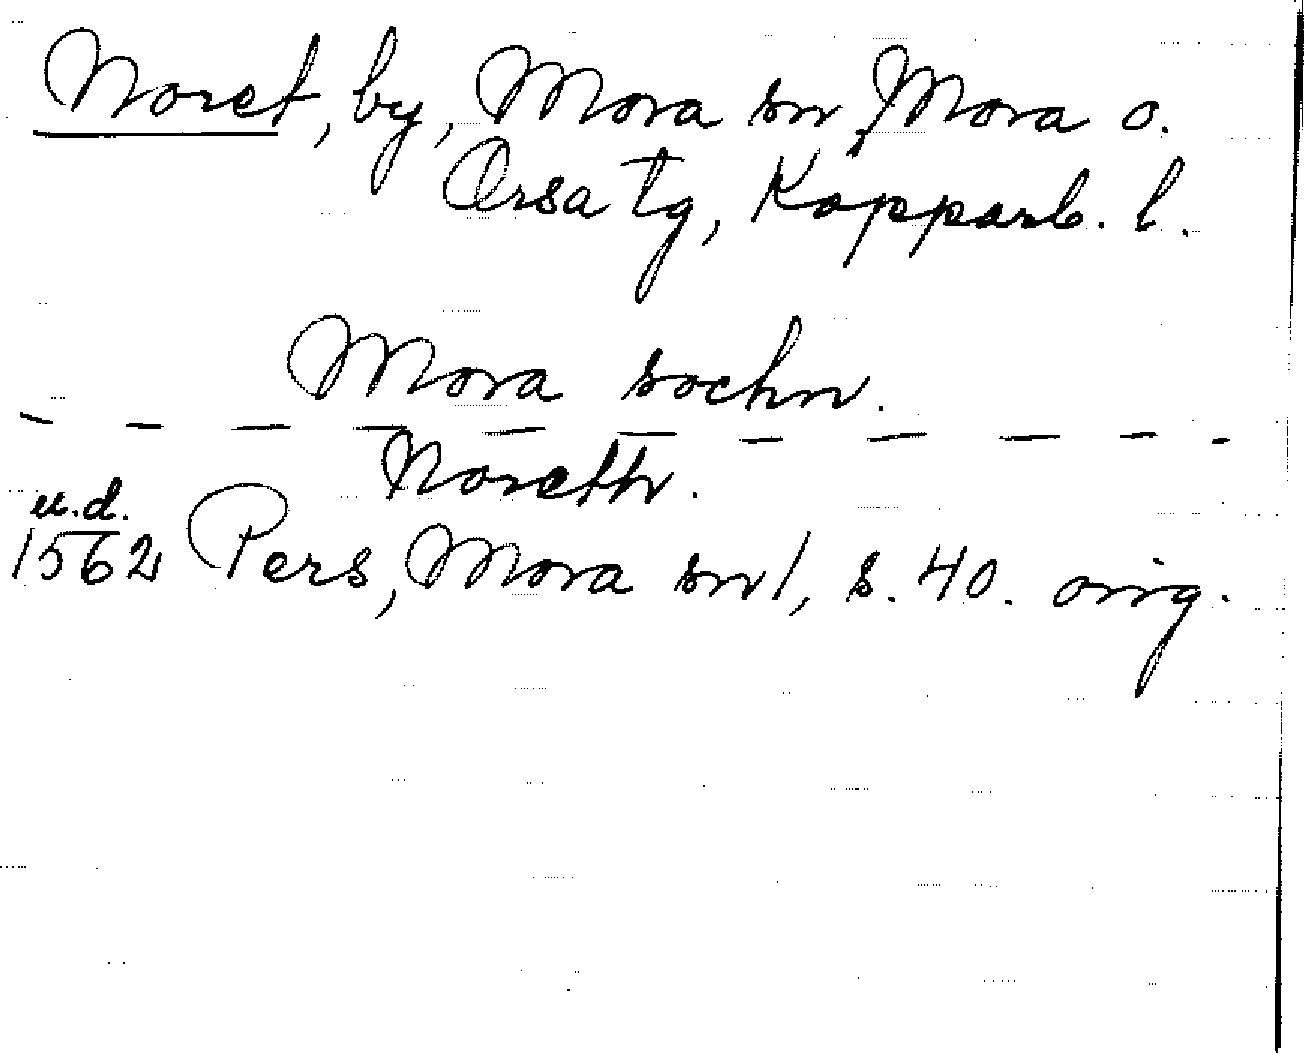 Noret, by, Mora sn, Mora o.
Orsa tg, Kopparb. l.
Mora sochn.
— — — — — — — — — — —
Noretth.
u.d.
1562 Pers, Mora sn 1, s. 40. orig.